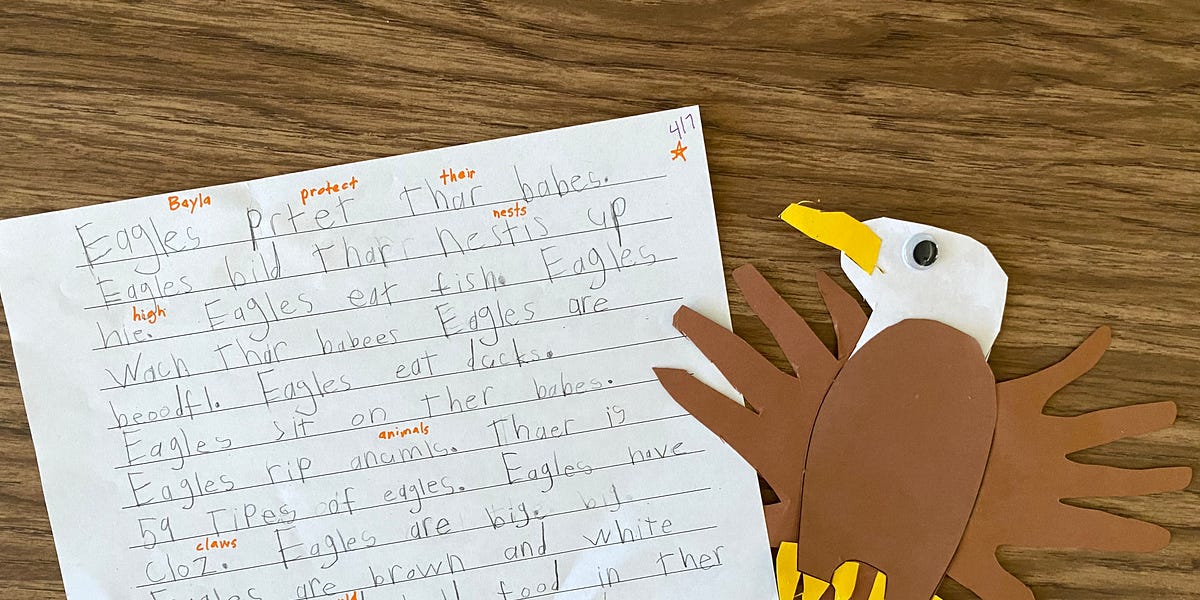 4/7
Bayla protect their
Eagles prtet thar babes.
nests
Eagles bild thar nestis up
high
hie. Eagles eat fish. Eagles
Wach thar babees Eagles are
beoodfl. Eagles eat ducks.
Eagles sit on ther babes.
animals
Eagles rip anamls. Thaer is
59 Tipes of eagles. Eagles have
claws
cloz. Eagles are big. big.
Eagles are brown and white
food in ther